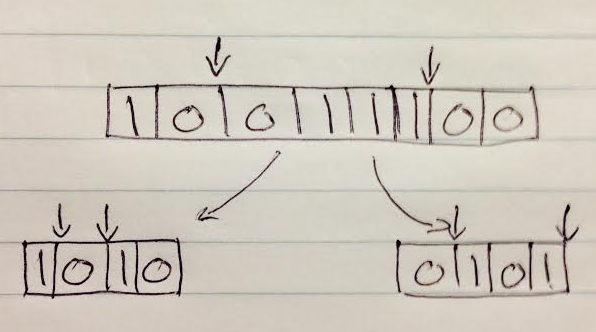 1 0 0 1 1 1 0 0
1 0 1 0
0 1 0 1